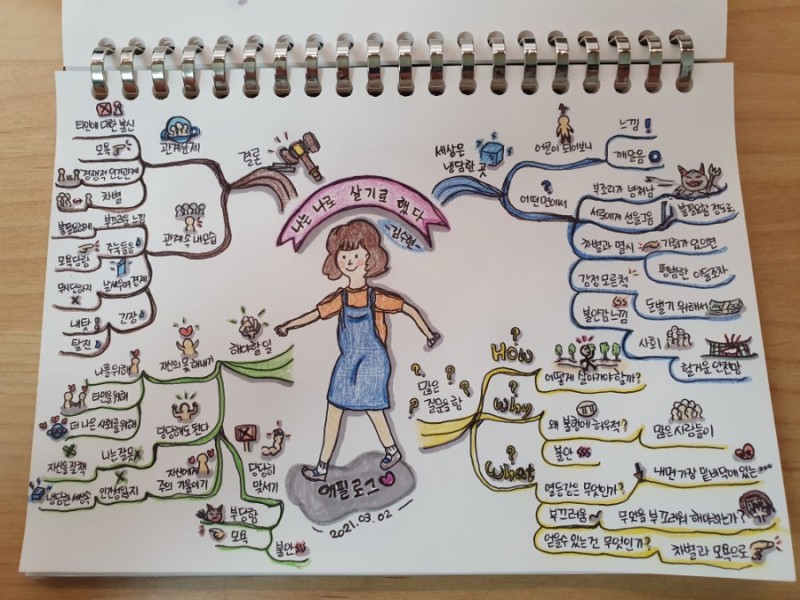 나는 나로 살기로 했다
-김수현-
에필로그
2021.03.02
세상은
냉담한 곳
어른이 되어보니
느낌
깨달음
어떤 면에서
부조리가 넘쳐남
서로에게 선을 그음
불필요할 정도로
차별과 멸시
기회가 있으면
평범한 이들조차
감정 모른척
불안감 느낌
돈벌기 위해서
사회
헐거운 안전망
많은
질문을 함
How
어떻게 살아가야 할까?
Why
왜 불안에 허우적?
많은 사람들이
불안
What
열등감은 무엇인가?
내면 가장 밑바닥에 있는...
부끄러움
무엇을 부끄러워 해야하는가?
얻을수 있는건 무엇인가?
차별과 모욕으로
결론
관계문제
타인에 대한 불신
모욕
경쟁적 인간관계
차별
관계속 내모습
불필요하게
부끄러움 느낌
모욕당할
주눅들음
무시당하지
날세우며 경계
긴장
내탓
탈진
해야할 일
자신의 몫 해내기
나를 위해
타인을 위해
더 나은 사회를 위해
당당해도 된다
나는 잘못
자신을 질책
자신에게
주의 기울이기
인간성 잃지
냉담한 세상속
당당히
맞서기
부당함
모욕
불안